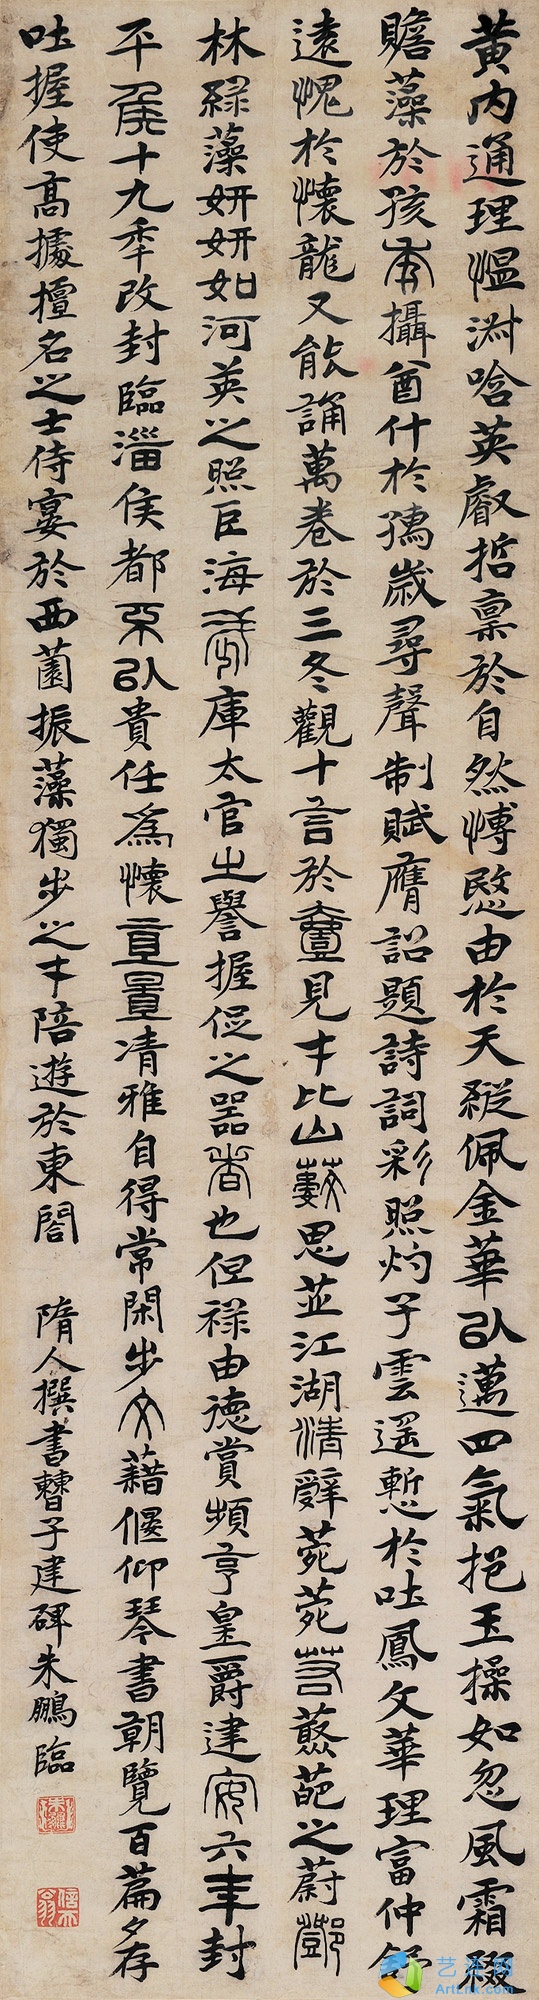 黃内通理慍淵啥英叡哲稟於自然愽愍由於天縱佩金華以邁四氣抱玉操如忽風霜綴
贍藻於孩年攝酋什於孺歲尋聲制賦膺詔題詩詞彩照灼子雲遥慙於吐鳳文華理富仲舒
遠愧於懷龍又能誦萬卷於三冬觀十言於壹見才比山藪思並江湖清辭菀菀若蘂葩之蔚鄧
林緑藻妍妍如河英之照巨海武庫太官之譽握促之器者也但禄由德賞頻享皇爵建安六年封
平侯十九年改封臨淄侯都不以貴任爲懷直置清雅自得常閑步文藉偃仰琴書朝覽百篇夕存
吐握使高據擅名之士侍宴於西園振藻獨步之才陪遊於東閣 隋人撰書曹子建碑朱鵬臨
艺连网
ArtLnk.com